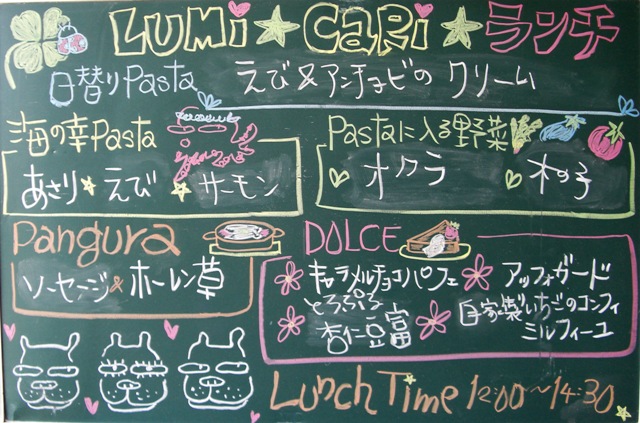 LUMi★CARi★ランチ
日替りPasta えび&アンチョビの クリーム
海の幸Pasta
あさり★えび★サーモン
Pastaに入る野菜
オクラ 木の子
Pangura
ソーセージ&ホーレン草
DOLCE
キャラメルチョコパフェ
アッフォガード
とろぷろ
杏仁豆富
自家製いちごのコンフィ
ミルフィーユ
Lunch Time 12:00〜14:30